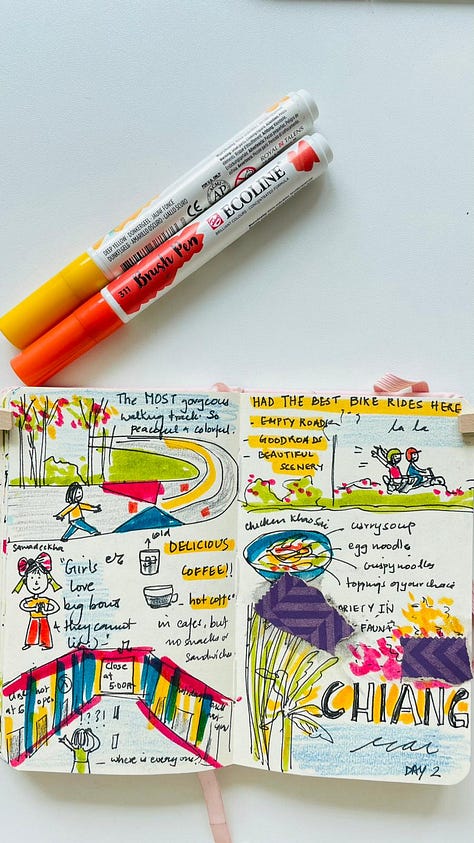 DEEP YELLOW · DUNKELGEEL · JAUNE FONCÉ
DUNKELGELB · AMARILLO OSCURO · GIALLO SCURO
CE
AP
ROYAL TALENS
311 Brush Pen
ECOLINE
The MOST gorgeous
walking track. So
peaceful & colorful.
Sawadeekha
"Girls
love
big bows
& they cannot
lie :)"
cold
DELICIOUS
COFFEE!!
- hot coffee
in cafes, but
no snacks or
sandwiches
not
open
close
at
5:00PM
! ? ? !
- where is everyone?
HAD THE BEST BIKE RIDES HERE
- EMPTY ROADS
- GOOD ROADS
- BEAUTIFUL
SCENERY
la la
chicken Khao Soi
curry soup
egg noodles
crispy noodles
toppings of your choice
VARIETY IN
FAUNA
CHIANG
mai
DAY 2